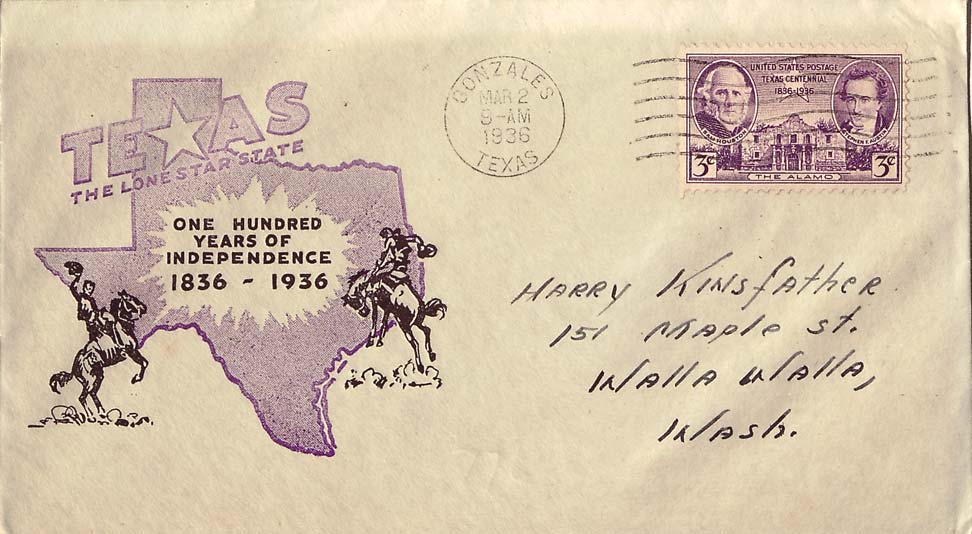 TEXAS
THE LONE STAR STATE
ONE HUNDRED
YEARS OF
INDEPENDENCE
1836 - 1936
GONZALES
MAR 2
9-AM
1936
TEXAS
UNITED STATES POSTAGE
TEXAS CENTENNIAL
1836-1936
SAM HOUSTON
STEPHEN F. AUSTIN
3¢ 3¢
THE ALAMO
HARRY KINSfather
151 Maple st.
Walla Walla,
Wash.